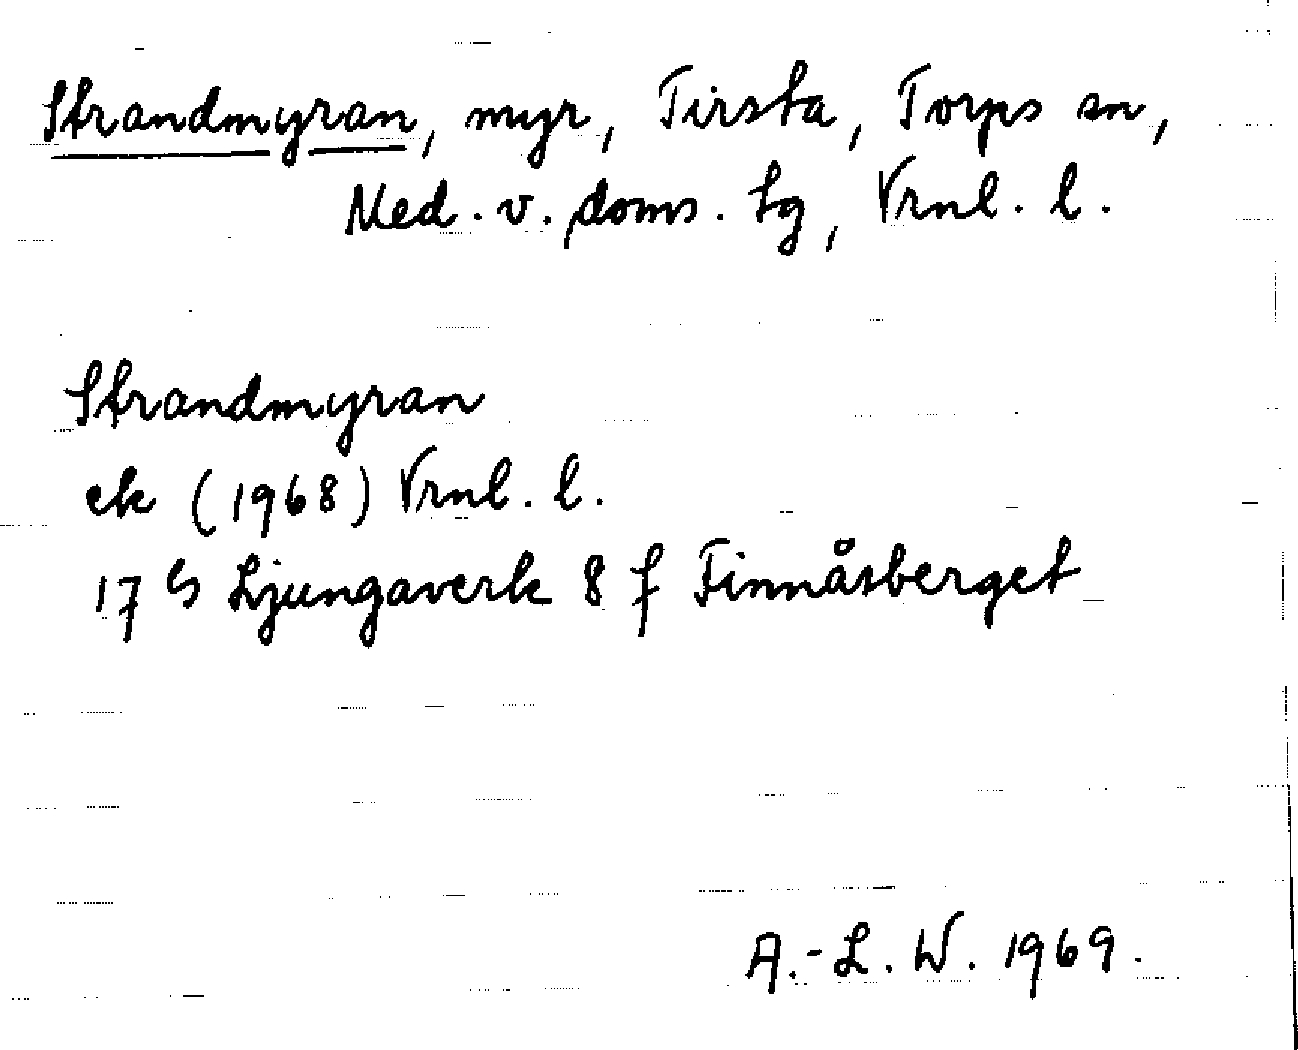 Strandmyran, myr, Tirsta, Torps sn,
Med. v. doms. tg, Vrnl. l.
Strandmyran
ek (1968) Vrnl. l.
17 G Ljungaverk 8 f Finnåsberget
A.-L. W. 1969.